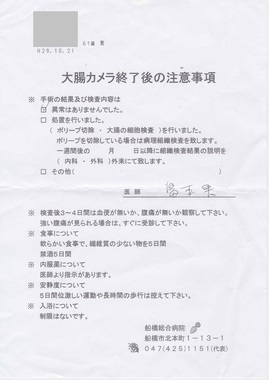 61歳 男
H29.10.21
大腸カメラ終了後の注意事項
※ 手術の結果及び検査内容は
☑ 異常はありませんでした。
□ 処置を行いました。
( ポリープ切除 ・ 大腸の細胞検査 )を行いました。
ポリープを切除している場合は病理組織検査を致します。
一週間後の 月 日以降に組織検査結果の説明を
( 内科 ・ 外科 )外来にて致します。
□ その他( )
医 師
※ 検査後3～4日間は血便が無いか、腹痛が無いか観察して下さい。
強い腹痛が見られる場合は、すぐに受診して下さい。
※ 食事について
軟らかい食事で、繊維質の少ない物を5日間
禁酒5日間
※ 内服薬について
医師より指示があります。
※ 安静度について
5日間位激しい運動や長時間の歩行は控えて下さい。
※ 入浴について
制限はないです。
船橋総合病院
船橋市北本町1－13－1
047(425)1151(代表)